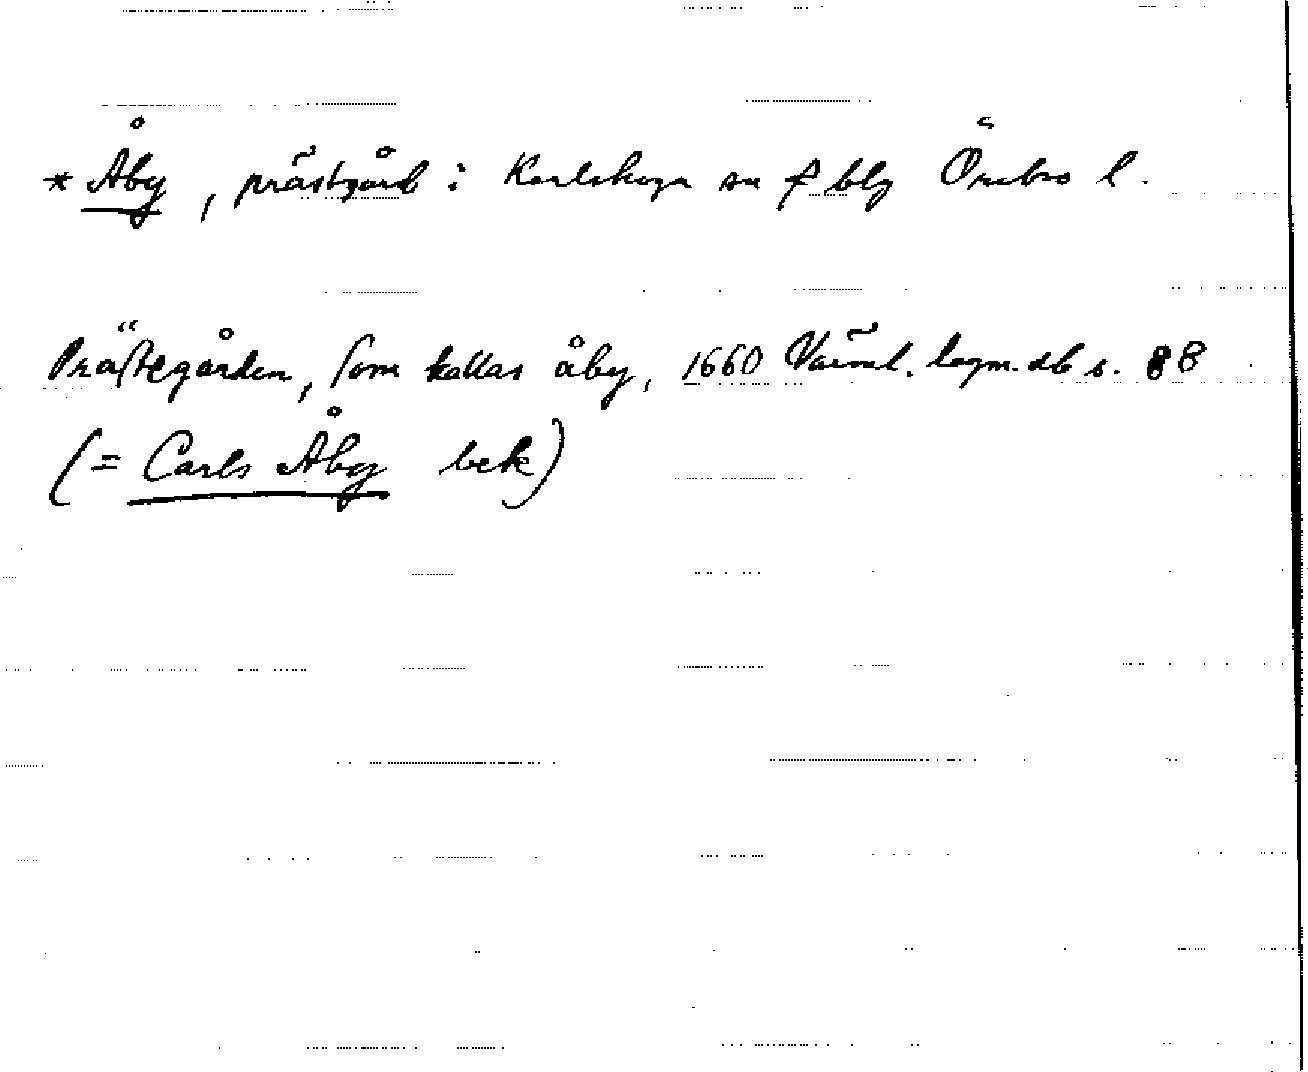 * Åby, prästgård i Karlskoga sn f blg Örebro l.
Prästegården, som kallas åby, 1660 Värml. lagm. db s. 88
(= Carls Åby bek)